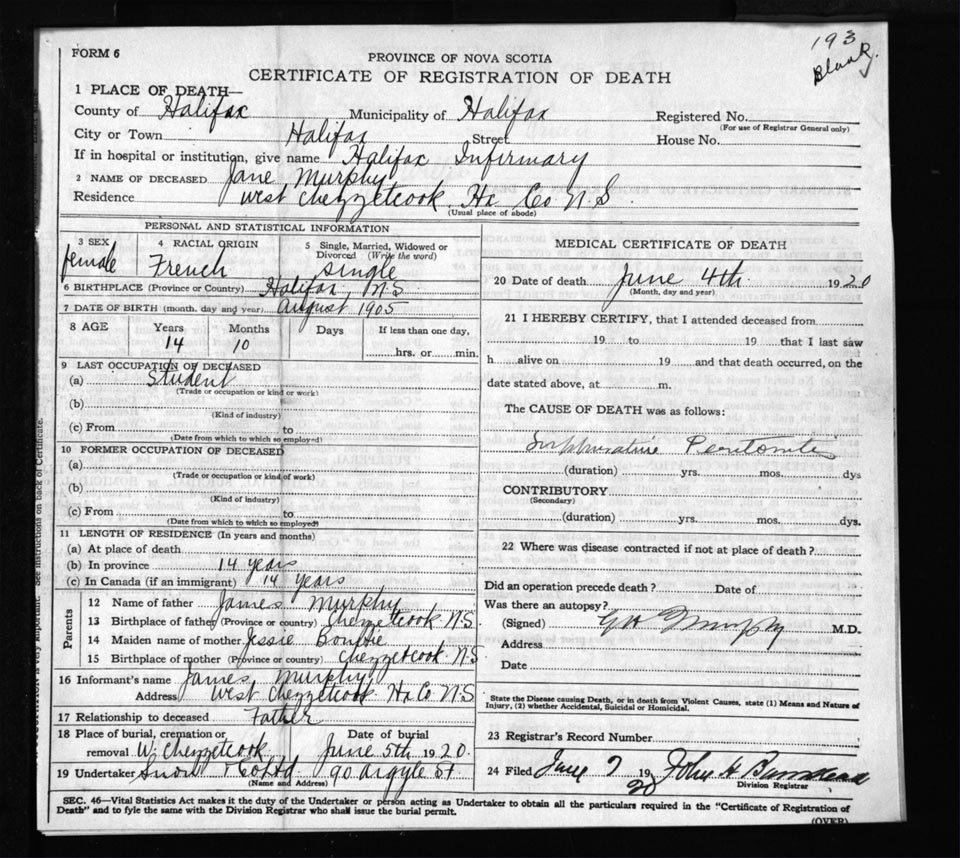 FORM 6
193
PROVINCE OF NOVA SCOTIA
CERTIFICATE OF REGISTRATION OF DEATH
1 PLACE OF DEATH—
County of Halifax Municipality of Halifax Registered No.
(For use of Registrar General only)
City or Town Halifax Street House No.
If in hospital or institution, give name Halifax Infirmary
2 NAME OF DECEASED Jane Murphy
Residence West Chezzetcook Hx Co N.S.
(Usual place of abode)
PERSONAL AND STATISTICAL INFORMATION
3 SEX female
4 RACIAL ORIGIN French
5 Single, Married, Widowed or Divorced (Write the word) Single
6 BIRTHPLACE (Province or Country) Halifax N.S.
7 DATE OF BIRTH (month, day and year) August 1905
8 AGE Years Months Days If less than one day,
14 10 hrs. or min.
9 LAST OCCUPATION OF DECEASED
(a) Student
(Trade or occupation or kind or work)
(b)
(Kind of industry)
(c) From to
(Date from which to which so employed)
10 FORMER OCCUPATION OF DECEASED
(a)
(Trade or occupation or kind of work)
(b)
(Kind of industry)
(c) From to
(Date from which to which so employed)
11 LENGTH OF RESIDENCE (In years and months)
(a) At place of death
(b) In province 14 years
(c) In Canada (if an immigrant) 14 years
Parents
12 Name of father James Murphy
13 Birthplace of father (Province or country) Chezzetcook N.S.
14 Maiden name of mother Jessie
15 Birthplace of mother (Province or country) Chezzetcook N.S
16 Informant's name James Murphy
Address West Chezzetcook Hx Co N.S
17 Relationship to deceased Father
18 Place of burial, cremation or Date of burial
removal W. Chezzetcook June 5th 1920.
19 Undertaker Snow & Co Ltd 90 Argyle St
(Name and Address)
MEDICAL CERTIFICATE OF DEATH
20 Date of death June 4th 1920
(Month, day and year)
21 I HEREBY CERTIFY, that I attended deceased from
19 to 19 that I last saw
h alive on 19 and that death occurred, on the
date stated above, at m.
The CAUSE OF DEATH was as follows:
Suppurative Peritonitis
(duration) yrs. mos. dys
CONTRIBUTORY
(Secondary)
(duration) yrs. mos. dys.
22 Where was disease contracted if not at place of death?
Did an operation precede death? Date of
Was there an autopsy?
(Signed) G H Murphy M.D.
Address
Date
State the Disease causing Death, or in death from Violent Causes, state (1) Means and Nature of
Injury, (2) whether Accidental, Suicidal or Homicidal.
23 Registrar's Record Number
24 Filed June 7 1920 John H Barnstead
Division Registrar
SEC. 46—Vital Statistics Act makes it the duty of the Undertaker or person acting as Undertaker to obtain all the particulars required in the "Certificate of Registration of
Death" and to fyle the same with the Division Registrar who shall issue the burial permit.
(OVER)
See instructions on back of Certificate.